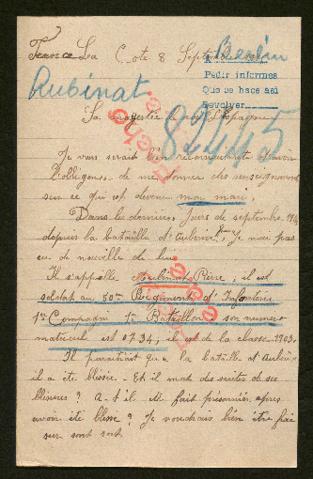 France La Cote 8 Septembre
Berlin
Pedir informes
Que se hace asi
Devolver
Aubinat
Sa majestée le roi d'Espagne
82445
Je vous serait bien reconnaissante d'avoir
l'obligence de me donner des renseignements
sur ce qui est devenu mon mari.
Dans les derniers jours de septembre 1914
depuis la bataille d'Auberive je n'ai pas
eu de nouvelle de lui.
Il s'appelle Aubinat Pierre, il est
soldat au 50e Régiment d'Infanterie
1re Compagnie 1r Bataillon son numero
matricul est 0734, il est de la classe 1903.
Il paraitrait qu'a la bataille d'Auberive
il a été blessé. Est il mort des suites de ses
blessures? A-t-il été fait prisonnier après
avoir été blessé? Je voudrais bien être fixé
sur son sort.